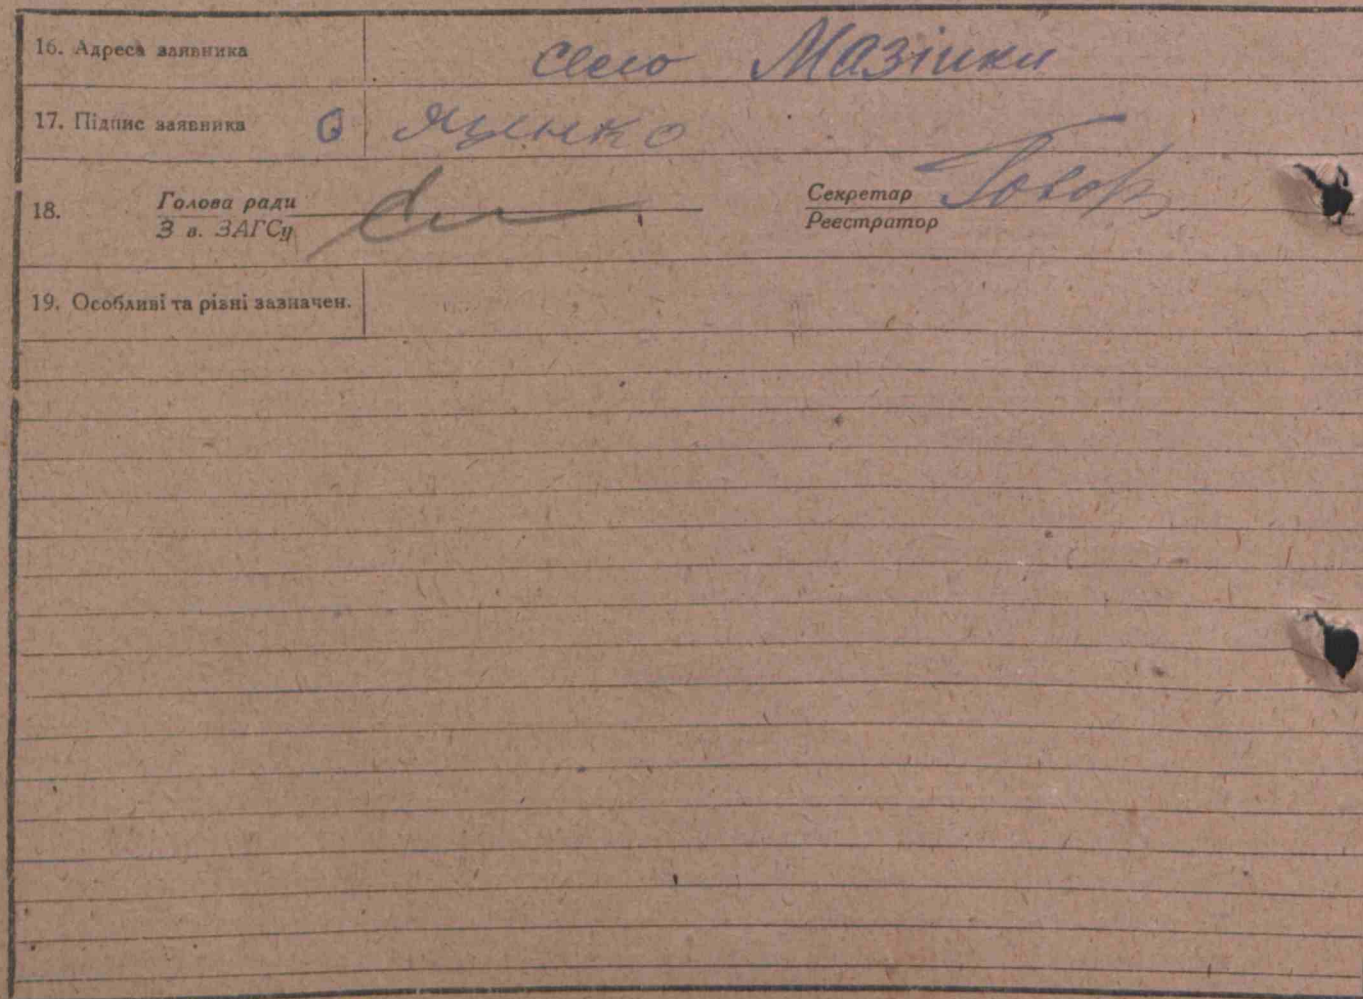 16. Адреса заявника село Мазінки
17. Підпис заявника О Яценко
18. Голова ради Секретар
З в. ЗАГСу Реєстратор
19. Особливі та різні зазначен.